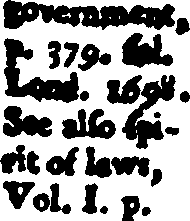 government,
p. 379. fol.
Lond. 1698.
See alſo ſpi-
rit of laws,
Vol. I. p.